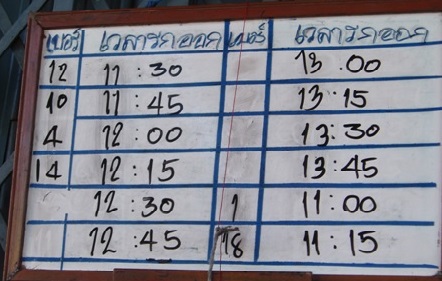 เบอร์ เวลารถออก เบอร์ เวลารถออก
12 11:30 13:00
10 11:45 13:15
4 12:00 13:30
14 12:15 13:45
12:30 1 11:00
12:45 18 11:15